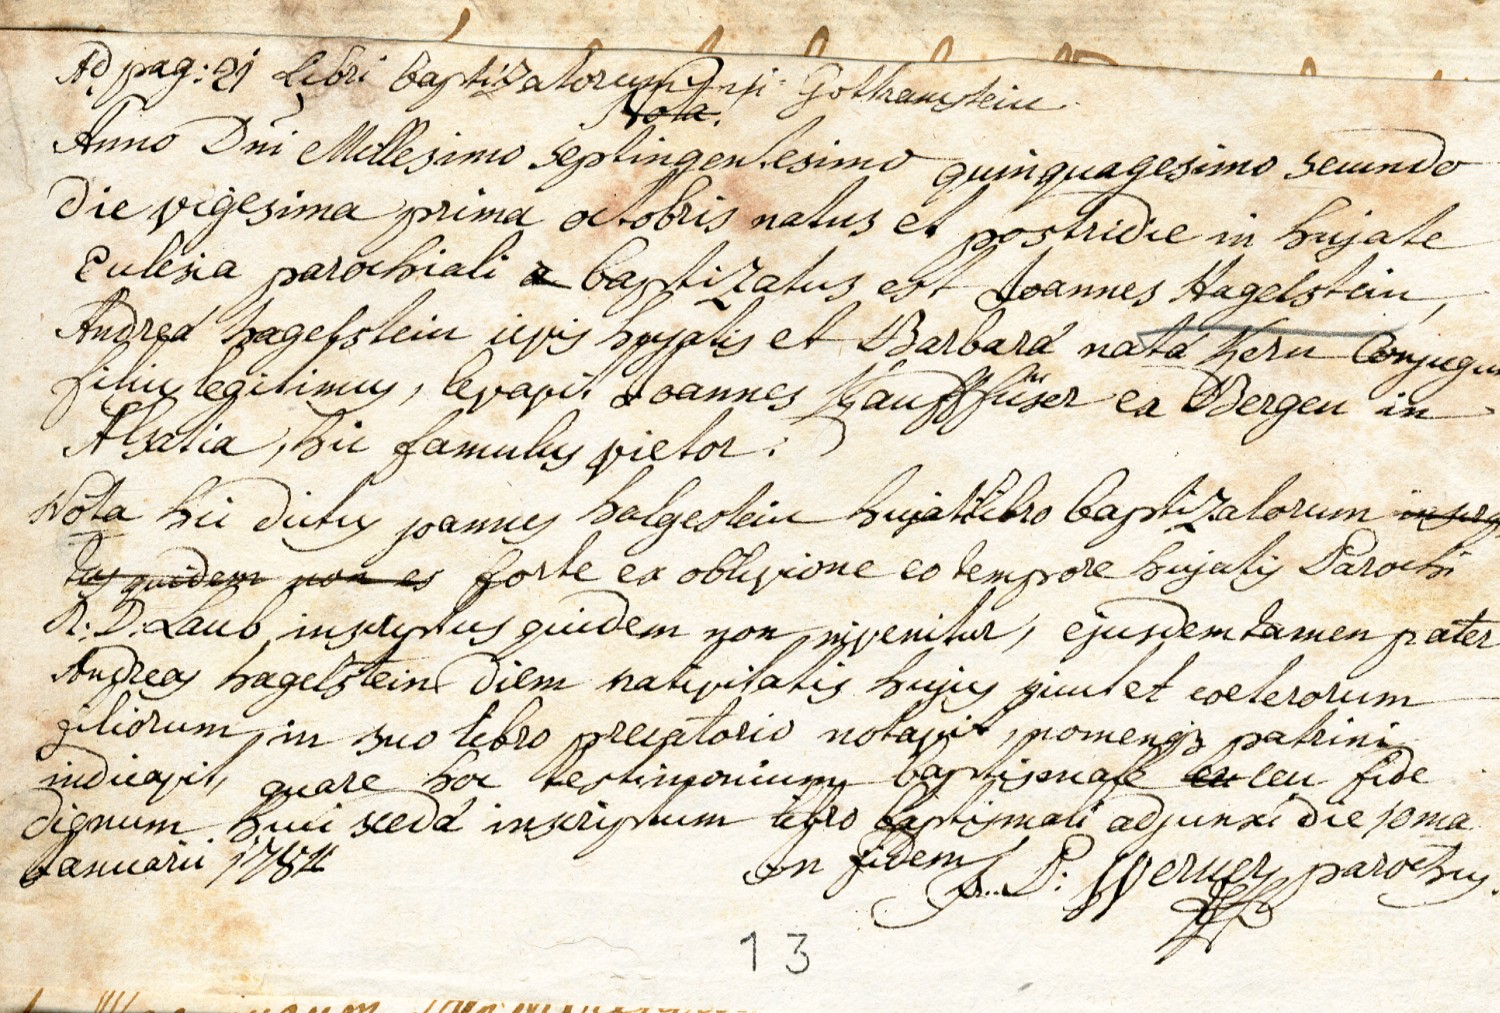 Ad pag: 21 Libri baptizatorum in Gottramstein
Nota.
Anno Dni Millesimo septingentesimo quinquagesimo secundo
die vigesima prima octobris natus et postridie in hujate
Eclesia parochiali a baptizatus est Joannes Hagelstein,
Andreá hagelstein civis hujatis et Barbará natá Kern Conjugum
filius legitimus, levavit Joannes Kauffhüser ex Bergen in
Alsatia, hic famulus vietor.
Nota hic dictus joannes halgestein hujati libro baptizatorum inscrip
tus quidem non es forte ex oblivione eo tempore hujatis Parochi
R: D: Laub inscriptus quidem non invenitur, ejusdem tamen pater
Andreas hagelstein diem nativitatis hujus sicut et coeterorum
filiorum in suo libro precatorio notavit, nomenq3 patrini
indicavit, quare hoc testimonium baptismale ceu fide
dignum huic scedá inscriptum libro baptismali adjunxi die 10ma
Januarii 1784
In fidem P: Werner parochus.
13